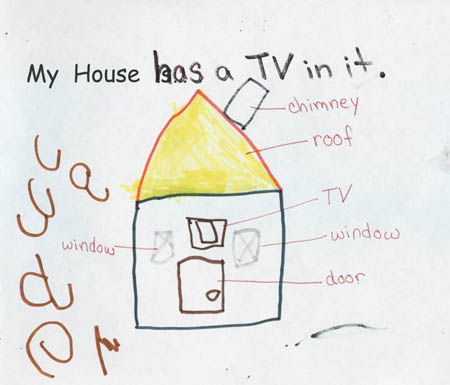 My House has a TV in it.
chimney
roof
TV
window
window
door